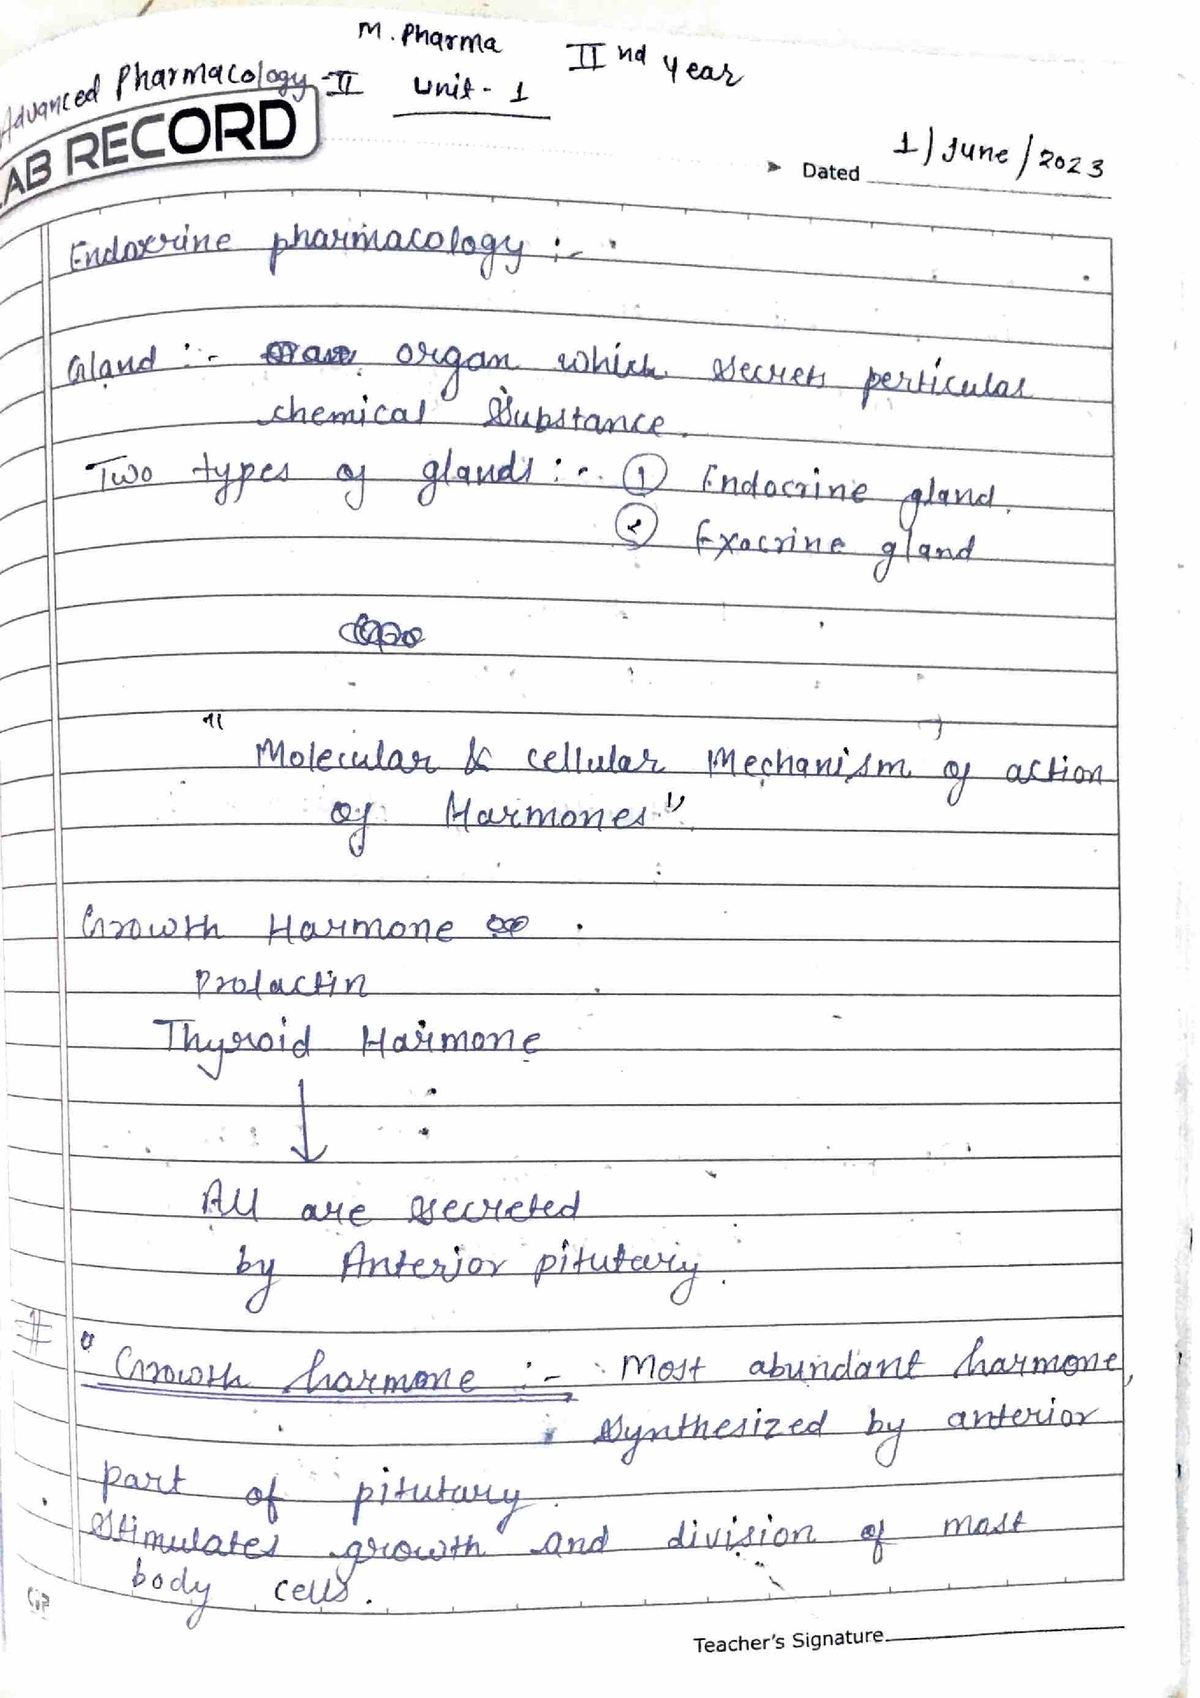 M. Pharma IInd Year
Advanced Pharmacology-II Unit - 1
LAB RECORD
Dated 1/June/2023
Endocrine pharmacology :-
Gland :- organ which secrets perticular
chemical substance.
Two types of glands :- ① Endocrine gland.
② Exocrine gland
"Molecular & cellular Mechanism of action
of Harmones"
Growth Harmone
Prolactin
Thyroid Harmone
↓
All are secreted
by Anterior pitutary.
# " Growth harmone :- Most abundant harmone,
synthesized by anterior
part of pitutary.
stimulates growth and division of most
body cells.
Teacher's Signature